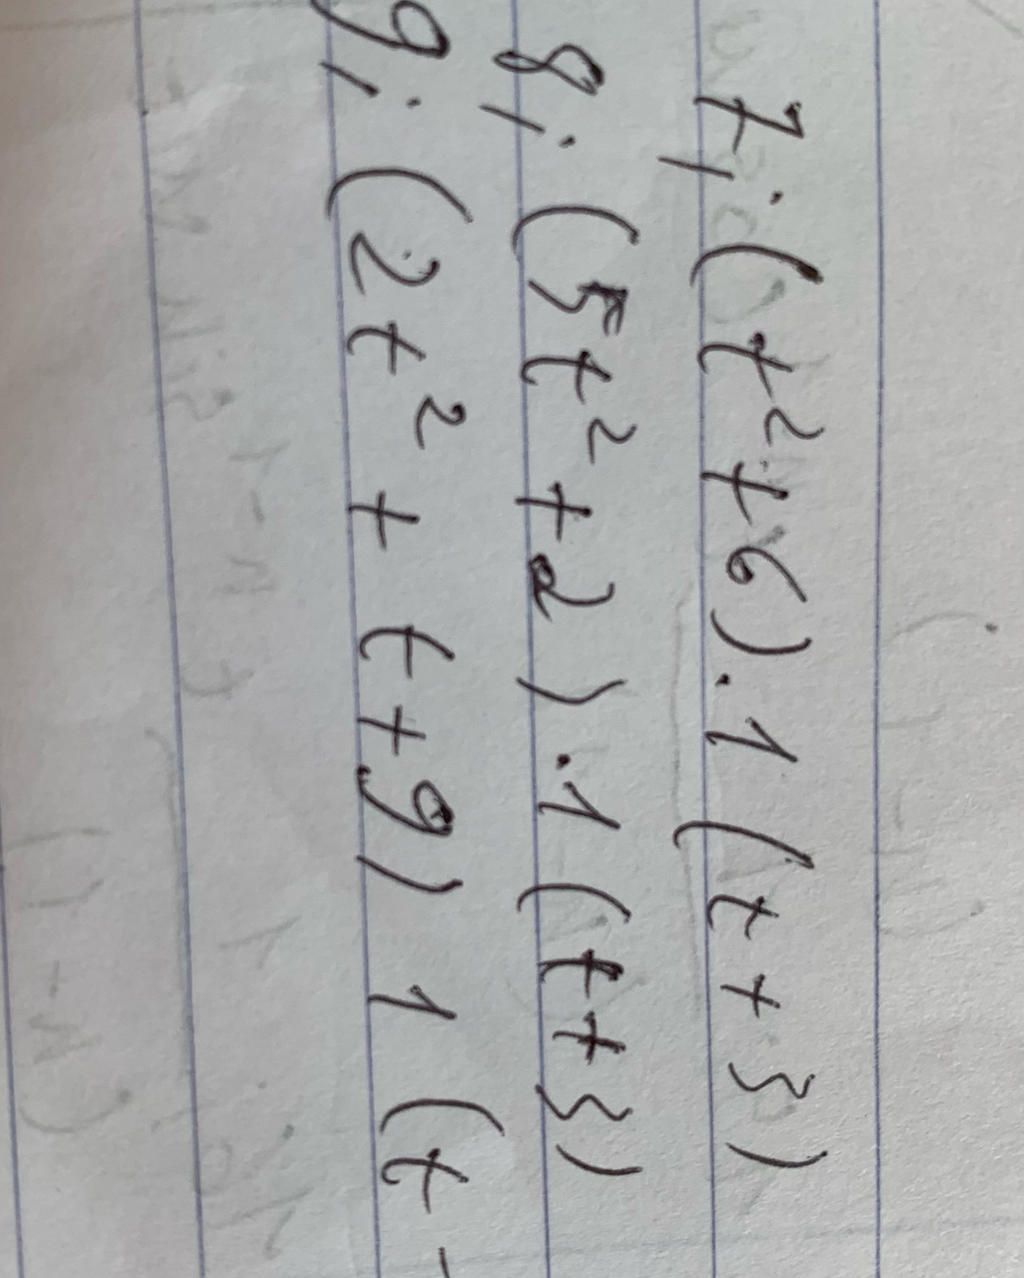 7, . (t² + 6) . 1 (t + 3)
8, . (5t² + 2) . 1 (t + 3)
9, . (2t² + t + 9) 1 (t -